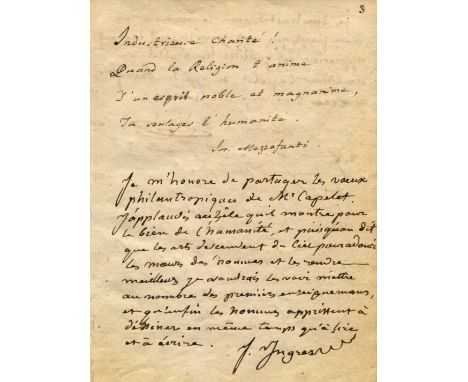 3
Industrieuse Charité !
Quand la Religion t'anime
D'un esprit noble et magnanime,
Tu soulages l'humanité.
Jos. Mezzofanti.
Je m'honore de partager les voeux
philantropiques de Mr Capelet.
J'applaudis au zèle qu'il montre pour
le bien de l'humanité, et puisqu'on dit
que les arts descendent du Ciel pour adoucir
les moeurs des hommes et les rendre
meilleurs je voudrais les voir mettre
au nombre des premiers enseignemens,
et qu'enfin les hommes apprissent à
dessiner en même temps qu'à lire
et à écrire.
J. Ingres